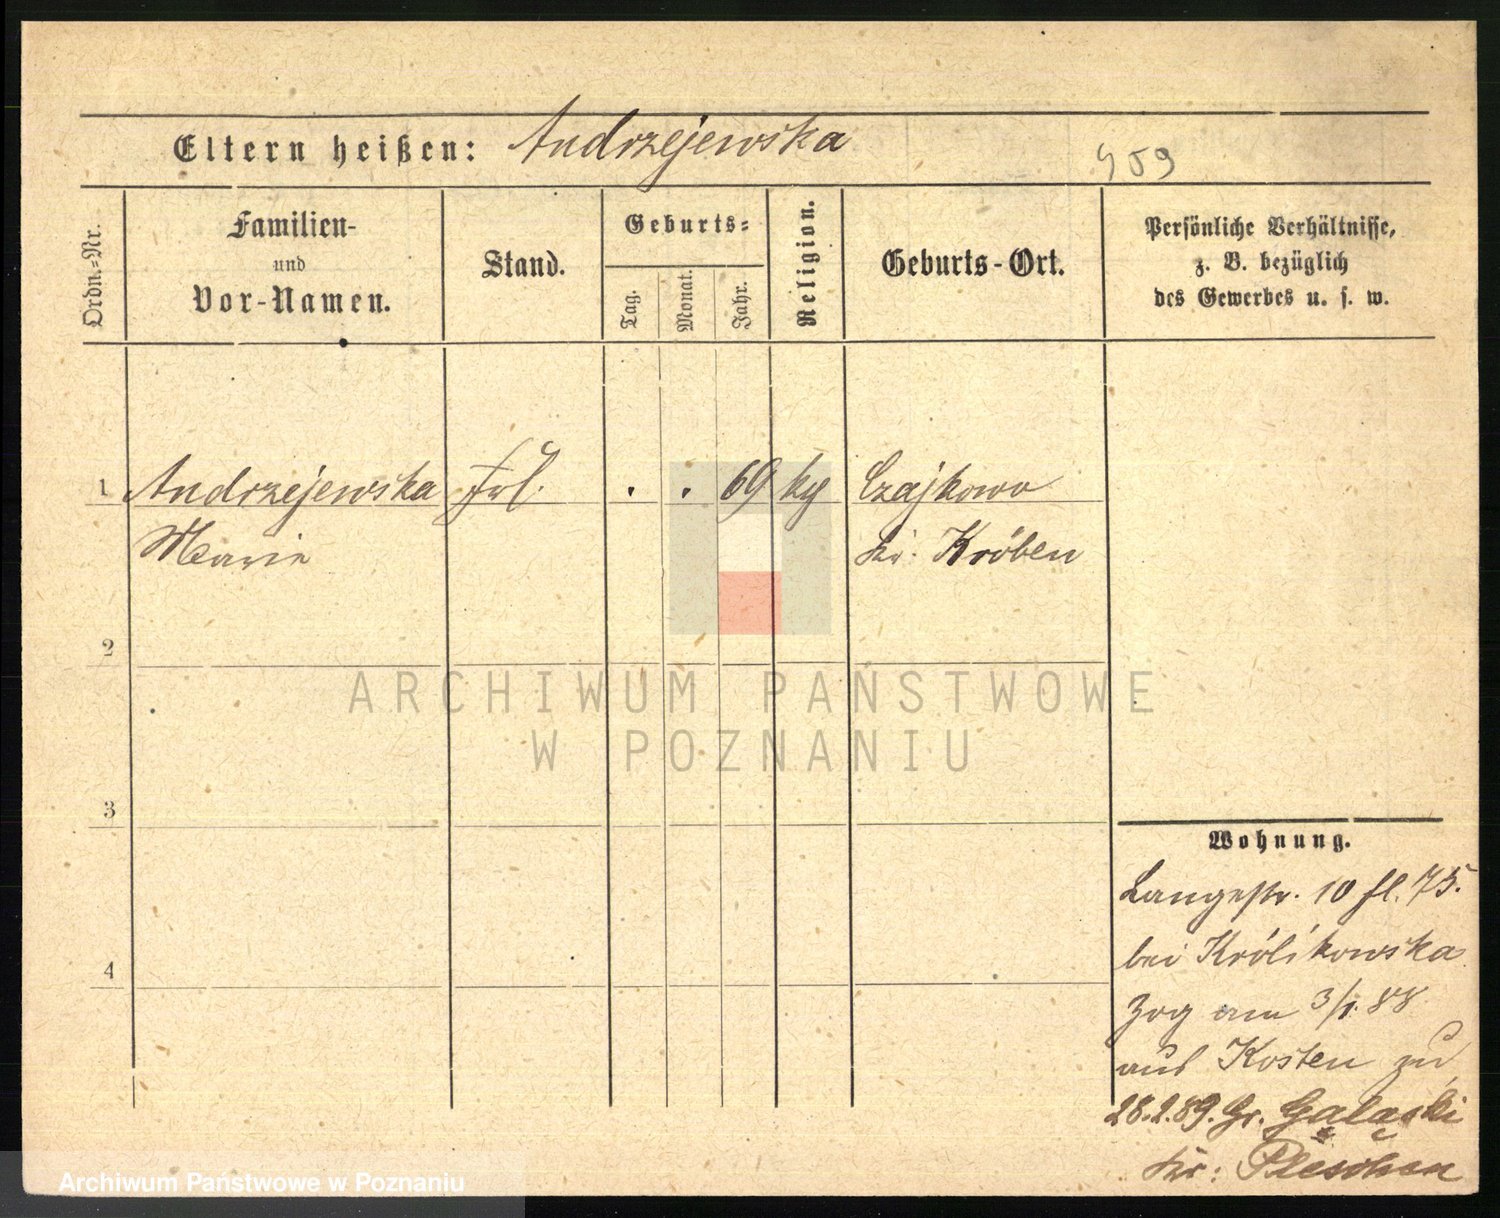 Eltern heißen: Andrzejewska
459
Ordn.-Nr.
Familien-
und
Vor-Namen.
Stand.
Geburts-
Tag.
Monat.
Jahr.
Religion.
Geburts-Ort.
Persönliche Verhältnisse,
z. B. bezüglich
des Gewerbes u. s. w.
1 Andrzejewska Frl. . . 69 kg Czajkowo
Marie Kr. Kröben
2
3
4
Wohnung.
Langestr. 10 fl. 75.
bei Królikowska
Zog am 3/1. 88
aus Kosten zu
28.2.89. Gr. Galązki
Kr: Pleschen
ARCHIWUM PAŃSTWOWE
W POZNANIU
Archiwum Państwowe w Poznaniu